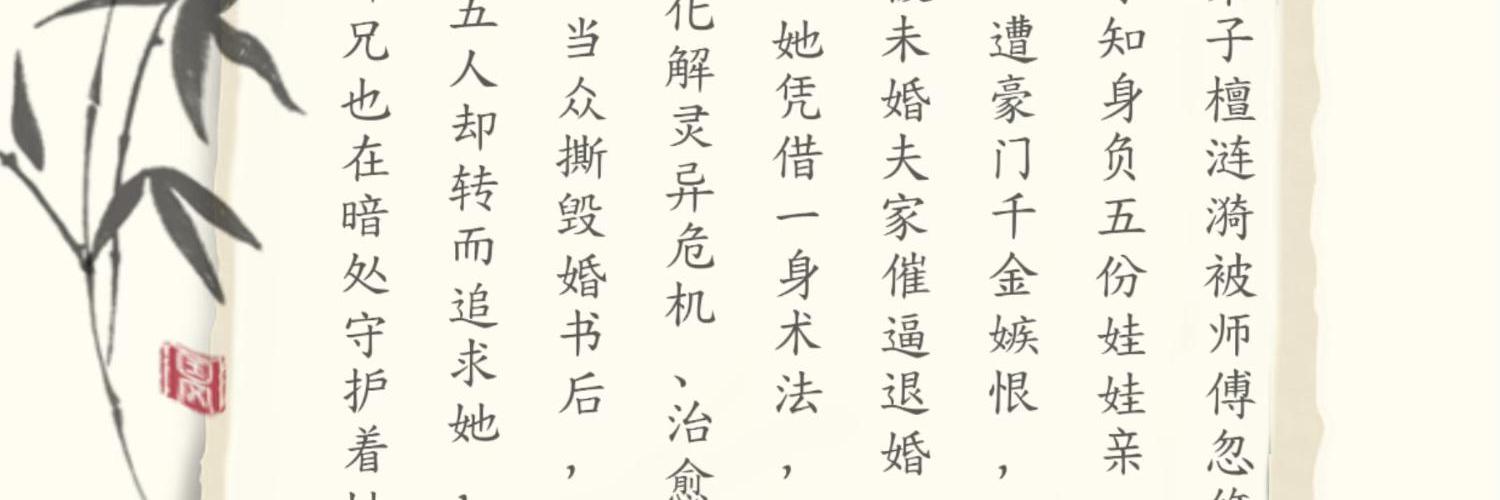 子檀涟漪被师傅忽
知身负五份娃娃亲
遭豪门千金嫉恨，
未婚夫家催逼退婚
她凭借一身术法，
化解灵异危机、治愈
当众撕毁婚书后，
五人却转而追求她，
兄也在暗处守护着